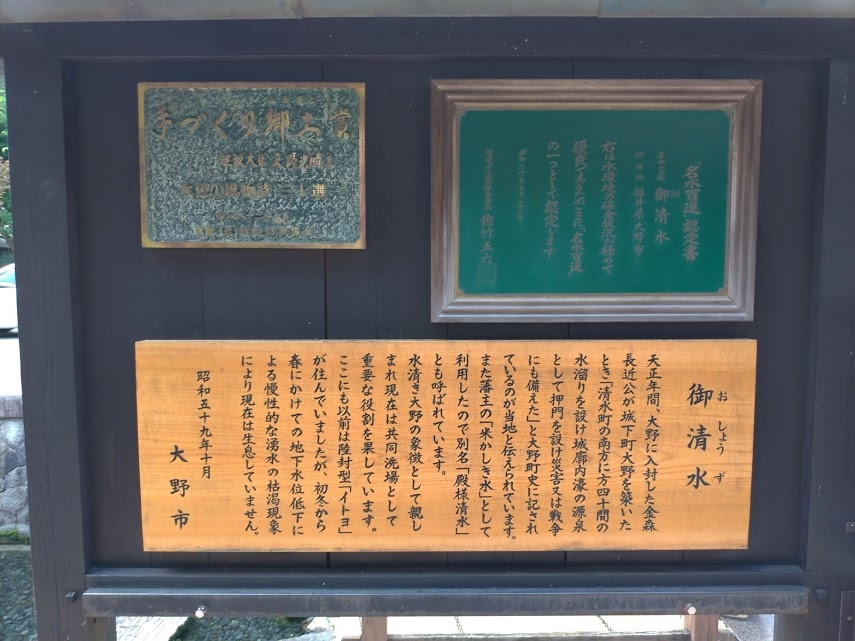 手づくり郷土賞
建設大臣 天野光晴
生活の中にいきる水辺 三十選
「名水百選」認定書
名水の名称 御清水
所在地 福井県大野市
右は水環境の保全状況が極めて
優良であるためここに「名水百選」
の一つとして認定します
昭和六十年七月二十二日
環境庁水質保全局長 佐竹五六
御清水
おしょうず
天正年間、大野に入封した金森
長近公が城下町大野を築いた
とき「清水町の南方に方四十間の
水溜りを設け城廓内濠の源泉
として押門を設け災害又は戦争
にも備えた」と大野町史に記され
ているのが当地と伝えられています。
また藩主の「米かしき水」として
利用したので別名「殿様清水」
とも呼ばれています。
水清き大野の象徴として親し
まれ現在は共同洗場として
重要な役割を果しています。
ここにも以前は陸封型「イトヨ」
が住んでいましたが、初冬から
春にかけての地下水位低下に
よる慢性的な湧水の枯渇現象
により現在は生息していません。
昭和五十九年十月
大野市